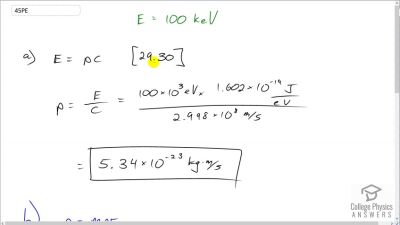 45PE
E = 100 keV
a) E = pc [29.30]
p = E/c = 100×10³eV × 1.602×10⁻¹⁹ J/eV / 2.998×10⁸ m/s
= 5.34×10⁻²³ kg·m/s
b)
College Physics
ANSWERS